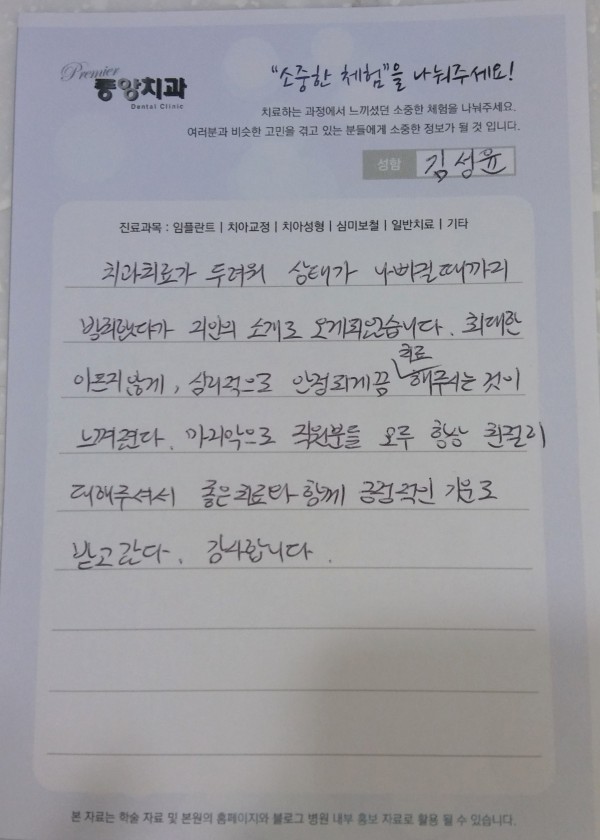 Premier
동양치과
Dental Clinic
"소중한 체험"을 나눠주세요!
치료하는 과정에서 느끼셨던 소중한 체험을 나눠주세요.
여러분과 비슷한 고민을 겪고 있는 분들에게 소중한 정보가 될 것 입니다.
성함 김성윤
진료과목 : 임플란트 | 치아교정 | 치아성형 | 심미보철 | 일반치료 | 기타
치과치료가 두려워 상태가 나빠질때까지
방치했다가 지인의 소개로 오게되었습니다. 최대한
아프지않게, 심리적으로 안정되게끔 치료 해주시는 것이
느껴졌다. 마지막으로 직원분들 모두 항상 친절히
대해주셔서 좋은치료와 함께 긍정적인 기운도
받고간다. 감사합니다.
본 자료는 학술 자료 및 본원의 홈페이지와 블로그 병원 내부 홍보 자료로 활용 될 수 있습니다.